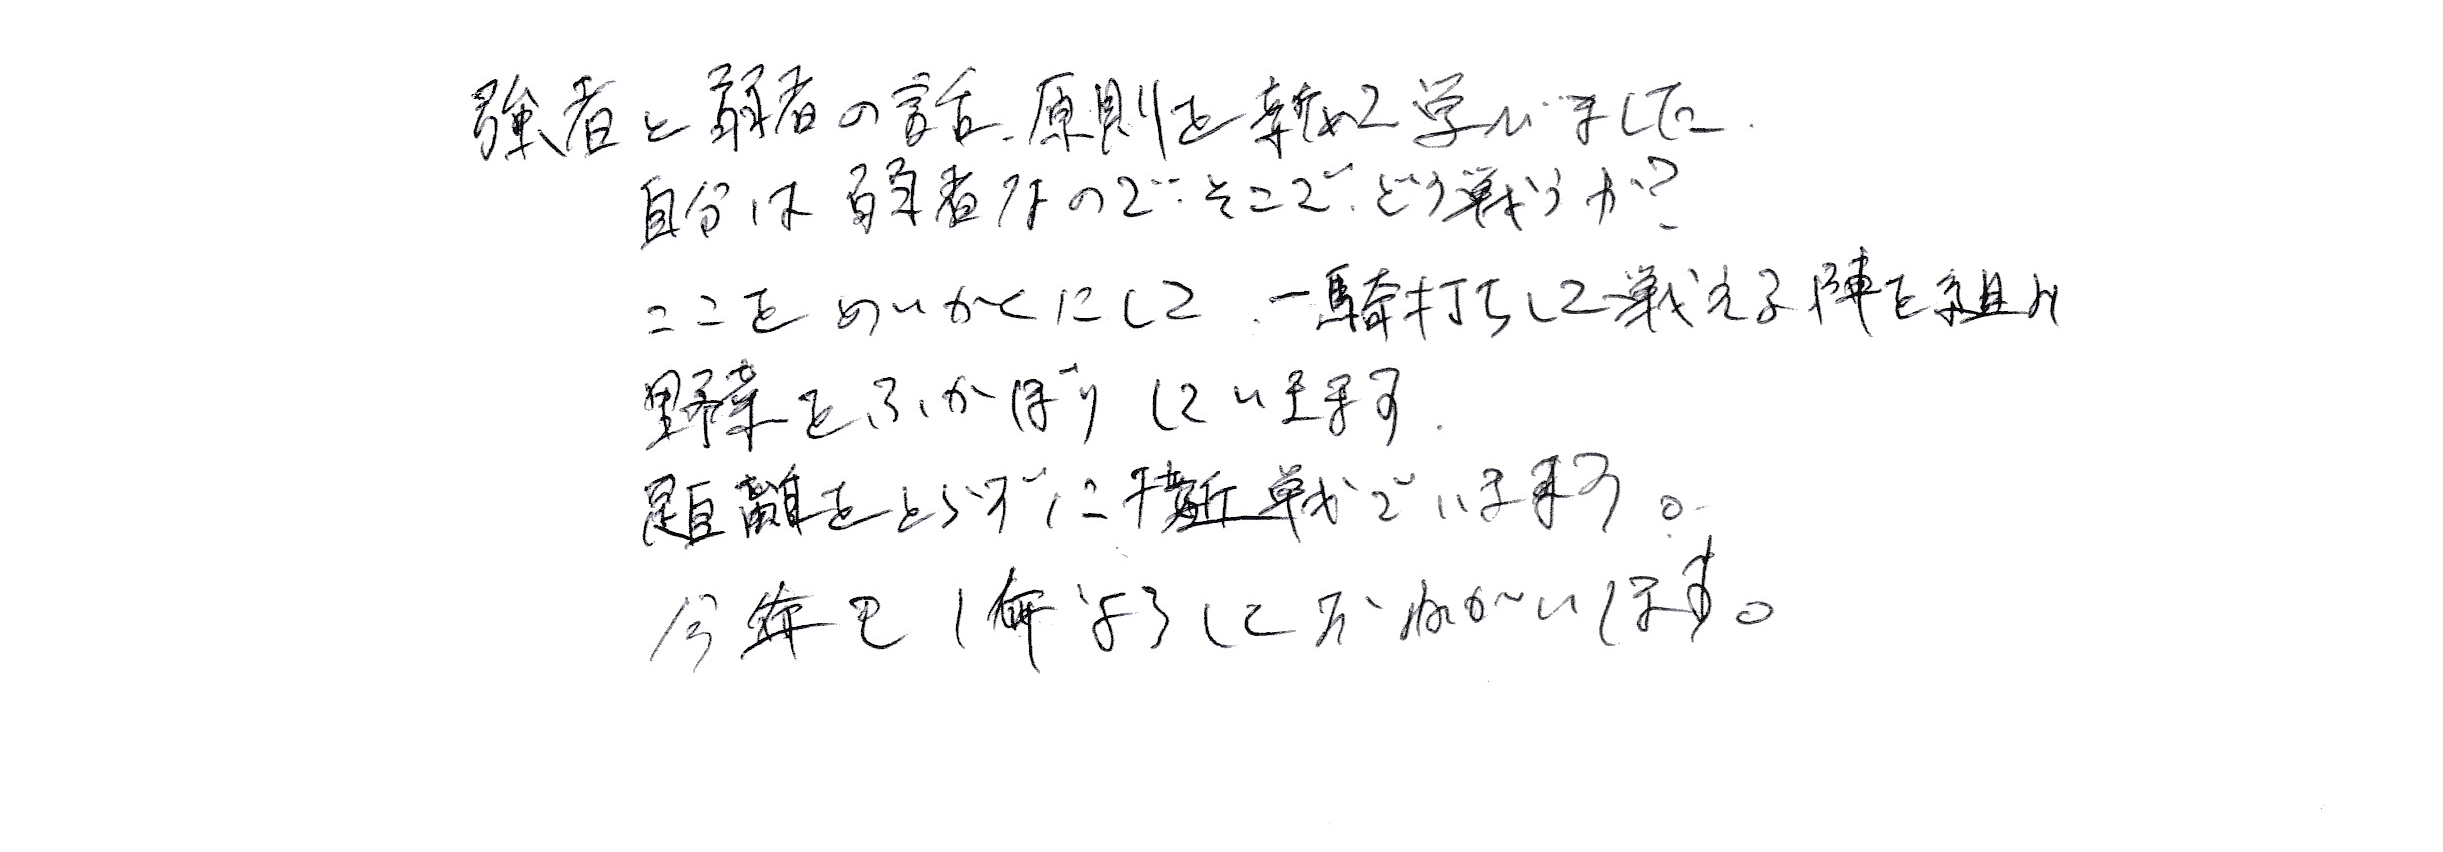 強者と弱者の話、原則を新めて学びました.
自分は弱者なので.そこで.どう戦うか?
ここをめいかくにして、一騎打ちして戦える陣を組み
野菜をふかぼりしています.
距離をとらずに接近戦でいます。
今年も1年よろしくおねがいします。